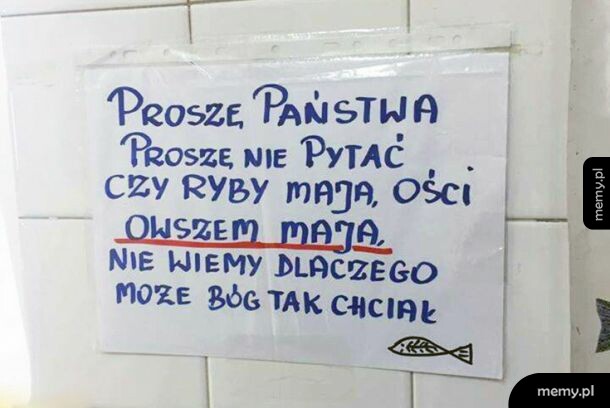 PROSZĘ PAŃSTWA
PROSZĘ NIE PYTAĆ
CZY RYBY MAJĄ OŚCI
OWSZEM MAJĄ
NIE WIEMY DLACZEGO
MOŻE BÓG TAK CHCIAŁ
memy.pl
memy.pl